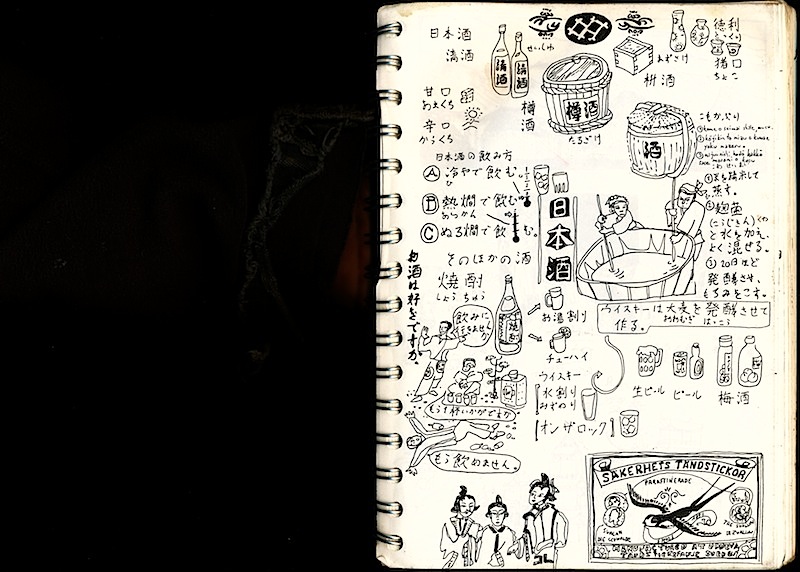 日本酒
清酒
せいしゅ
清酒
清酒
甘口
あまくち
辛口
からくち
樽酒
樽酒
たるざけ
ますざけ
枡酒
徳利
とっくり
猪口
ちょこ
酒
こもかぶり
①米を精米して
蒸す。
②麹菌
(こうじきん)
と水を加え、
よく混ぜる。
③20日ほど
発酵させ、
もろみをこす。
日本酒の飲み方
Ⓐ 冷やで飲む。
ひ
Ⓑ 熱燗で飲む。
あつかん
Ⓒ ぬる燗で飲む。
日本酒
そのほかの酒
焼酎
しょうちゅう
お酒は好きですか。
飲みに
行きません
か
焼酎
お湯割り
チューハイ
ウイスキー
水割り
みずわり
オンザロック
ウイスキーは大麦を発酵させて
おおむぎ はっこう
作る。
生ビール
ビール
梅酒
もう1杯いかがですか
もう飲めません。
SÄKERHETS TÄNDSTICKOR
PARAFFINERADE